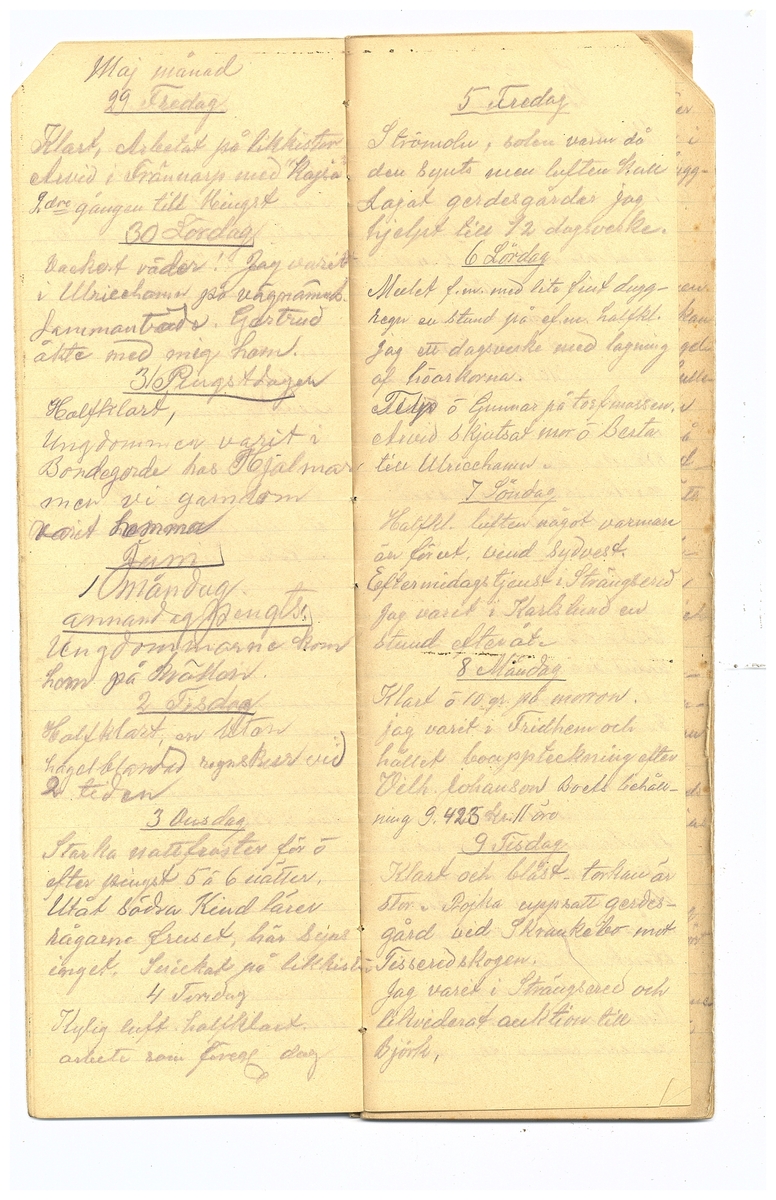 Maj månad
29 Fredag
Klart, Arbetat på likkistor
Arvid i Trännarp med "Kajsa"
2dra gången till Hingst
30 Lördag
Vackert väder! Jag varit
i Ulricehamn på vägnämnd.
sammanträde. Gertrud
åkte med mig hem.
31 Pingstdagen
Halfklart,
Ungdommen varit i
Bondegärde hos Hjalmar
men vi gamlom
varit hemma
Juni
1 Måndag.
annandag pingts.
Ungdommarne kom
hem på nattan.
2 Tisdag
Halfklart, en liten
hagelblandad regnskur vid
2 tiden
3 Onsdag
Starka nattfroster för ö
efter pingst 5 á 6 nätter.
Utåt södra Kind lärer
rågarne fruset, här synes
inget. Snickat på likkistor
4 Torsdag
Kylig luft halfklart.
arbete som föreg dag
5 Fredag
Strömoln, solen varm då
den synts men luften kall
Lagat gerdesgårdar jag
hjelpt till 1/2 dagsverke.
6 Lördag
Mulet f.m. med lite fint dugg-
regn en stund på ef.m. halfkl.
Jag ett dagsverke med lagning
af höaskorna.
ö Gunnar på torfmossen.
Arvid skjutsat mor ö Berta
till Ulricehamn.
7 Söndag
Halfkl. luften något varmare
än förut. vind sydvest.
Eftermidagstjenst i Strängsered
jag varit i Karlslund en
stund efteråt.
8 Måndag
Klart ö 10 gr. på morron.
jag varit i Fridhem och
hållet bouppteckning efter
Vilh. Johanson Boets behåll-
ning 9.425 kr. 11 öre
9 Tisdag
Klart och blåst torkan är
stor. Pojka uppsatt gerdes-
gård ved Skrankebo mot
Tisseredskogen.
Jag varit i Strängsered och
likvederat auktion till
Björk,